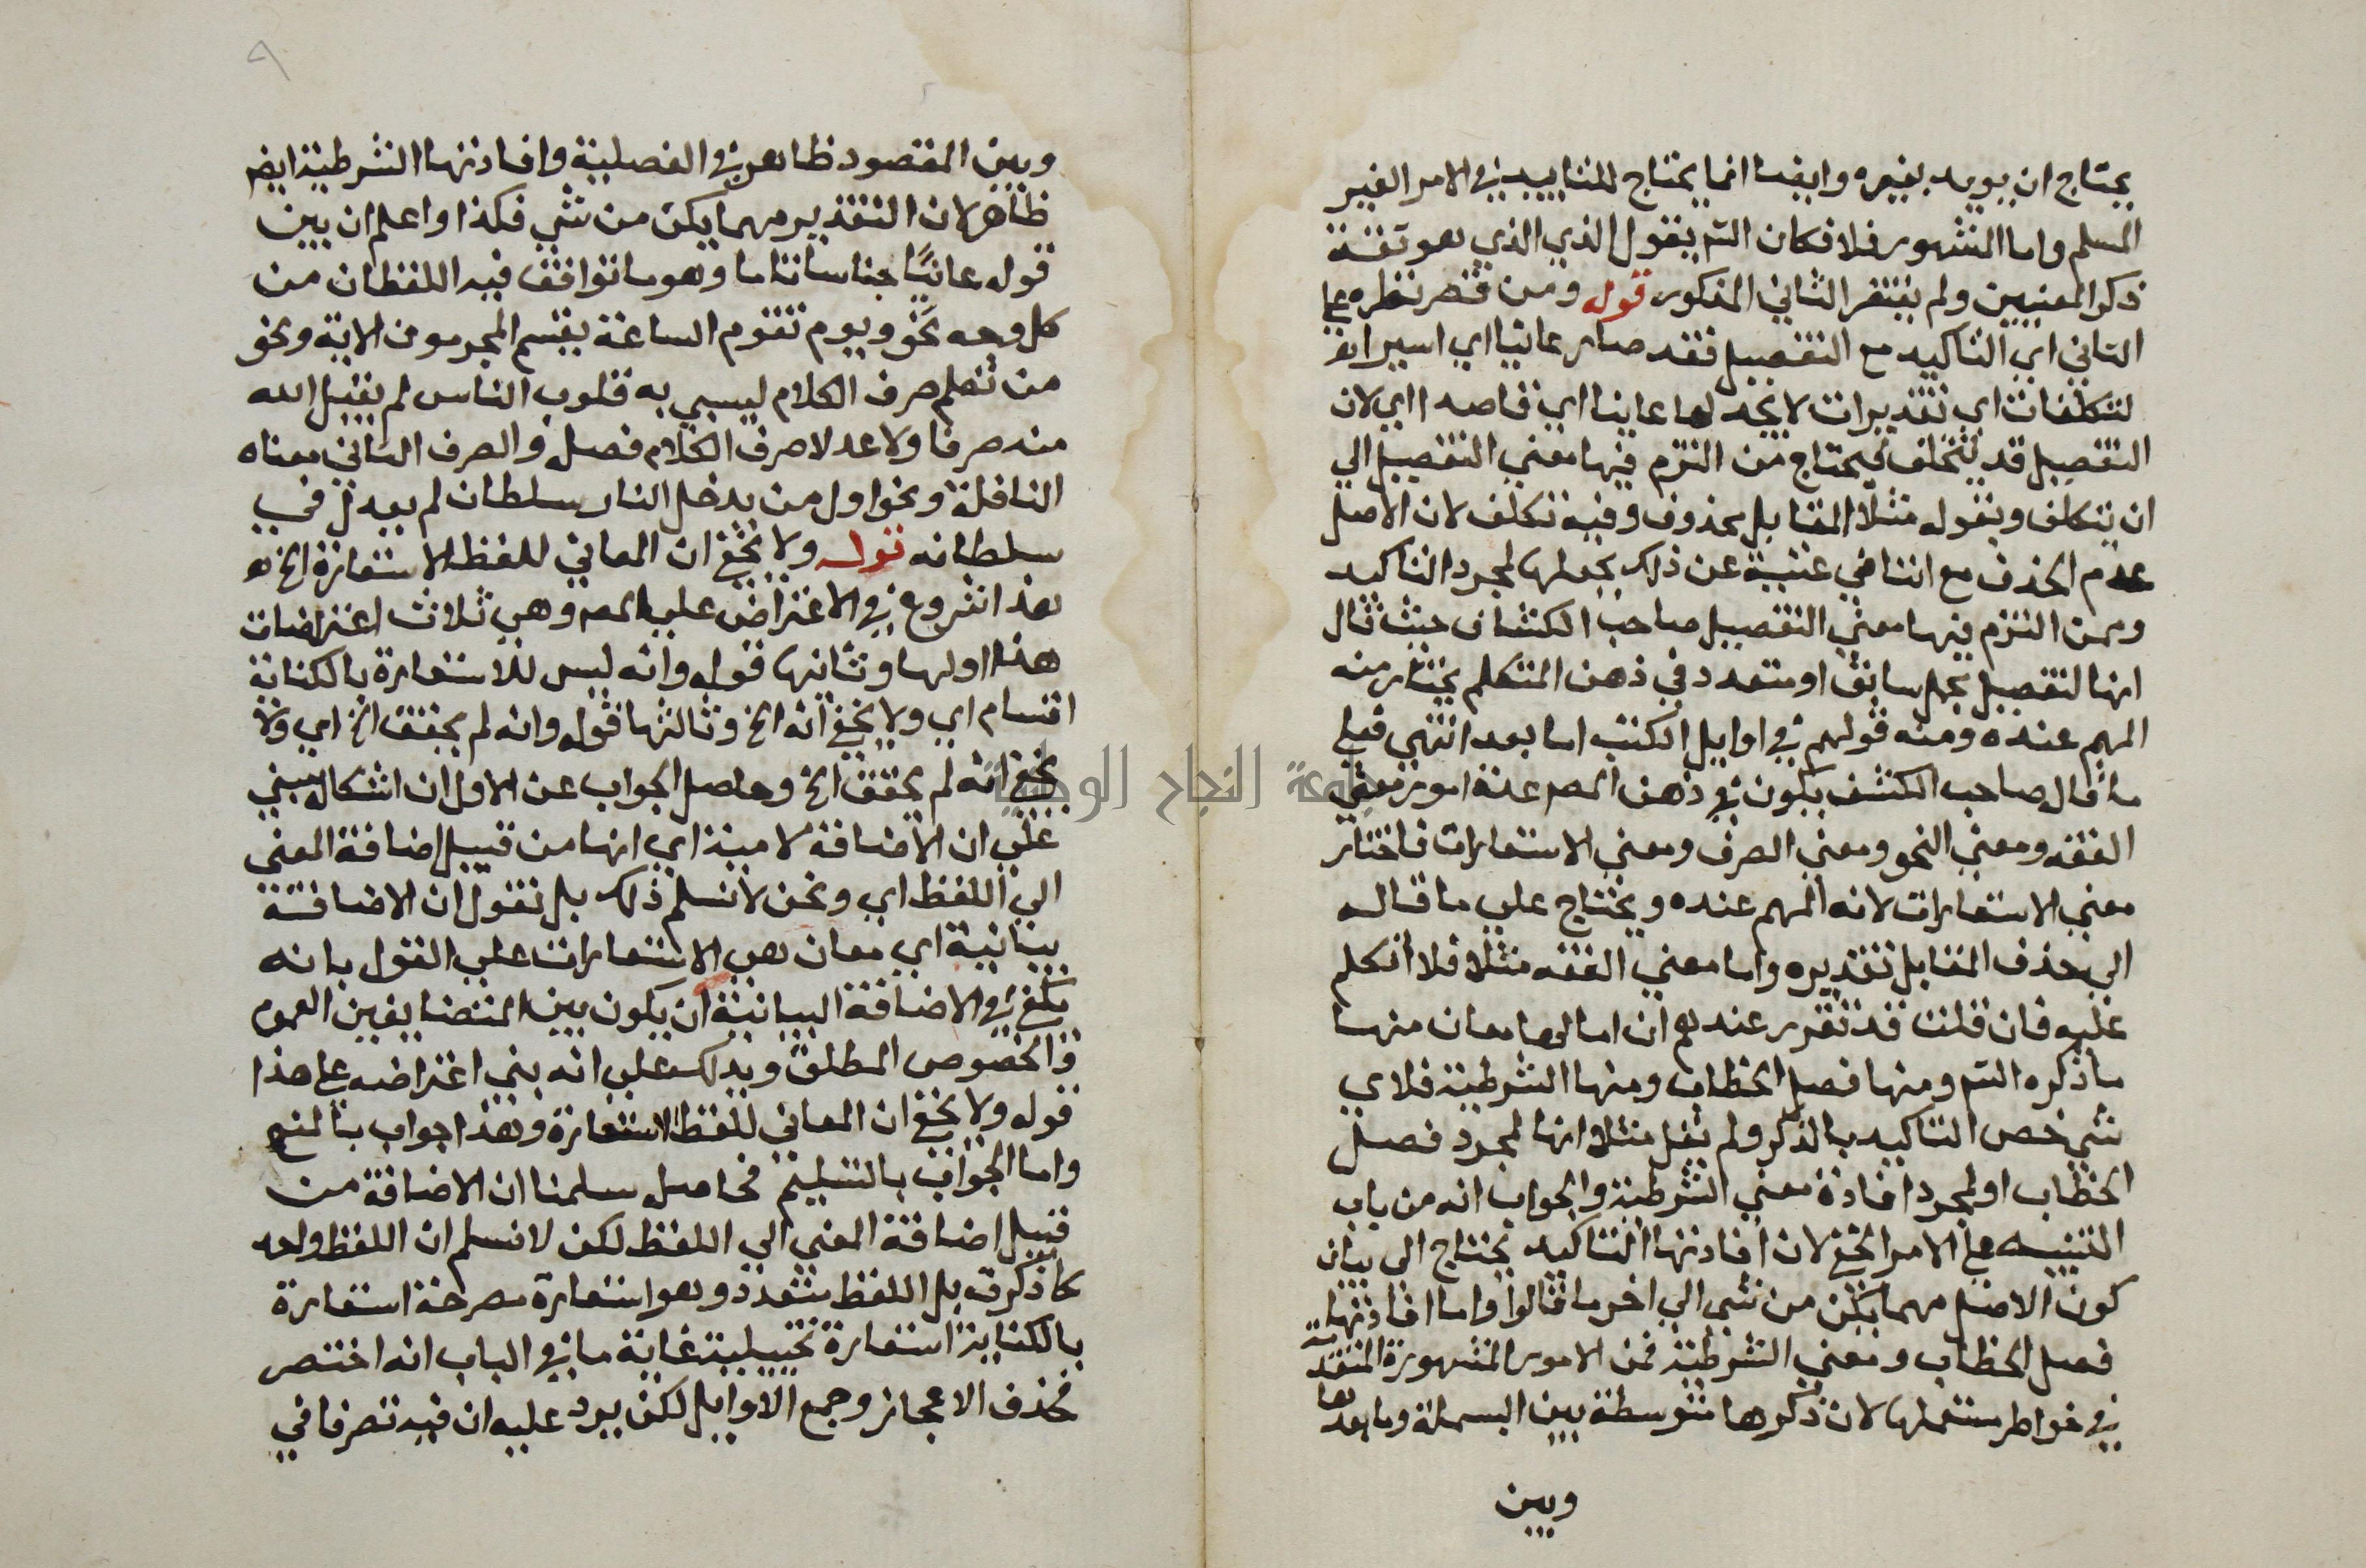 يحتاج ان يويد بغيره وايضا انما يحتاج للتاييد في الامر الغير
المسلم واما المشهور فلا فكان الشم يقول الذي الذي هو ثقة
ذكر المعنيين ولم يفتقر الثاني المذكور قوله ومن قصر نظره علي
الثاني اي التاكيد مع التفصيل فقد صار عانيا اي اسيرا اه
لتكلفات اي تقديرات لا تجد لها عاينا اي قاصدا اي لان
التفصيل قد يتخلف فيحتاج من التزم فيها معني التفصيل الي
ان يتكلف ويقول مثلا المقابل محذوف وفيه تكلف لان الاصل
عدم الحذف مع اننا في غنية عن ذلك بجعلها لمجرد التاكيد
وممن التزم فيها معني التفصيل صاحب الكشاف حيث قال
انها لتفصيل مجمل سابق او متعدد في ذهن المتكلم يختار منه
المهم عنده ومنه قولهم في اوايل الكتب اما بعد انتهي فعلي
ما قال صاحب الكشف يكون في ذهن المصم عدة امور معني
الفقه ومعني النحو ومعني الصرف ومعني الاستعارات فاختار
معني الاستعارات لانه المهم عنده ويحتاج علي ما قاله
الي حذف المقابل تقديره واما معني الفقه مثلا فلا اتكلم
عليه فان قلت قد تقرر عندهم ان اما لها معان منها
ما ذكره الشم ومنها فصل الخطاب ومنها الشرطية فلاي
شي خص التاكيد بالذكر ولم يقل مثلا انها لمجرد فصل
الخطاب او لمجرد افادة معني الشرطية والجواب انه من باب
التنبيه علي الامر الخفي لان افادتها التاكيد تحتاج الي بيان
كون الاصل مهما يكن من شي الي اخر ما قالوا واما افادتها
فصل الخطاب ومعني الشرطية فمن الامور المشهورة المتقدمة
في خواطر مستعملها لان ذكرها متوسطة بين البسملة وما بعدها
وبين
٩
وبين المقصود ظاهر في الفصلية وافادتها الشرطية ايضم
ظاهر لان التقدير مهما يكن من شي فكذا واعلم ان بين
قوله عانيًا جناسا تاما وهو ما توافق فيه اللفظان من
كل وجه نحو ويوم تقوم الساعة يقسم المجرمون الاية ونحو
من تعلم صرف الكلام ليسبي به قلوب الناس لم يقبل الله
منه صرفا ولا عدلا صرف الكلام فصله والصرف الثاني معناه
النافلة ونحو اول من يدخل النار سلطان لم يعدل في
سلطانه قوله ولا يخفي ان المعاني للفظ الاستعارة الخ اه
هذا شروع في الاعتراض علي المصم وهي ثلاث اعتراضات
هذا اولها وثانيها قوله وانه ليس للاستعارة بالكناية
اقسام اي ولا يخفي انه الخ وثالثها قوله وانه لم يحقق الخ اي ولا
يخفي انه لم يحقق الخ وحاصل الجواب عن الاول ان اشكاله مبني
علي ان الاضافة لامية اي انها من قبيل اضافة المعني
الي اللفظ اي ونحن لا نسلم ذلك بل نقول ان الاضافة
بيانية اي معان هي الاستعارات علي القول بانه
يكفي في الاضافة البيانية ان يكون بين المتضايفين العموم
والخصوص المطلق ويدلك علي انه بني اعتراضه علي هذا
قوله ولا يخفي ان المعاني للفظ الاستعارة وهذا جواب بالمنع
واما الجواب بالتسليم فحاصله سلمنا ان الاضافة من
قبيل اضافة المعني الي اللفظ لكن لا نسلم ان اللفظ واحد
كما ذكرت بل اللفظ متعدد وهو استعارة مصرحة استعارة
بالكناية استعارة تخييلية غاية ما في الباب انه اختصر
فحذف الاعجاز وجمع الاوايل لكن يرد عليه ان فيه تصرفا في